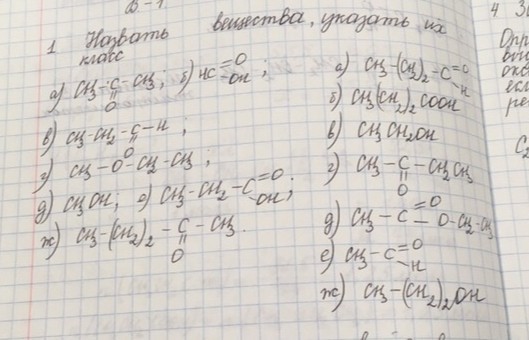 В-1
1 Назвать вещества, указать их
класс
а) CH₃-C-CH₃; б) HC=O
‖ OH ;
O
в) CH₃-CH₂-C-H ;
‖
O
г) CH₃-O-CH₂-CH₃ ;
д) CH₃OH; е) CH₃-CH₂-C=O
OH;
ж) CH₃-(CH₂)₂-C-CH₃.
‖
O
а) CH₃-(CH₂)₂-C=O
H
б) CH₃(CH₂)₂COOH
в) CH₃CH₂OH
г) CH₃-C-CH₂CH₃
‖
O
д) CH₃-C=O
-O-CH₂-CH₃
е) CH₃-C=O
H
ж) CH₃-(CH₂)₂OH
4